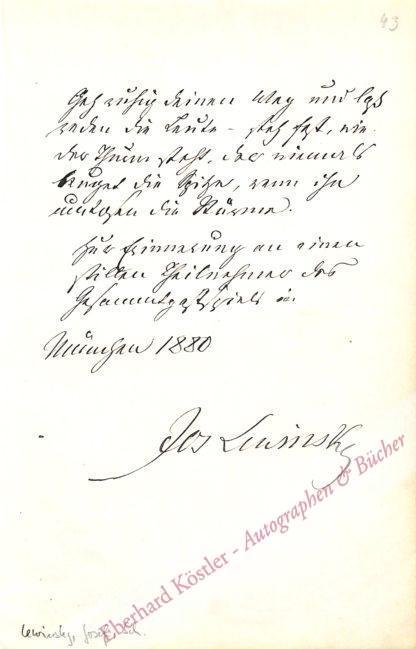 43
Geh ruhig deinen Weg und laß
reden die Leute – steh fest, wie
der Thurm steht, der niemals
beuget die Spitze, wenn ihn
umtosen die Stürme.
Zur Erinnerung an einen
stillen Theilnehmer des
Gesammtgastspiels in
München 1880
Jos Lewinsky
Eberhard Köstler - Autographen & Bücher
Lewinsky, Josef, Sch.